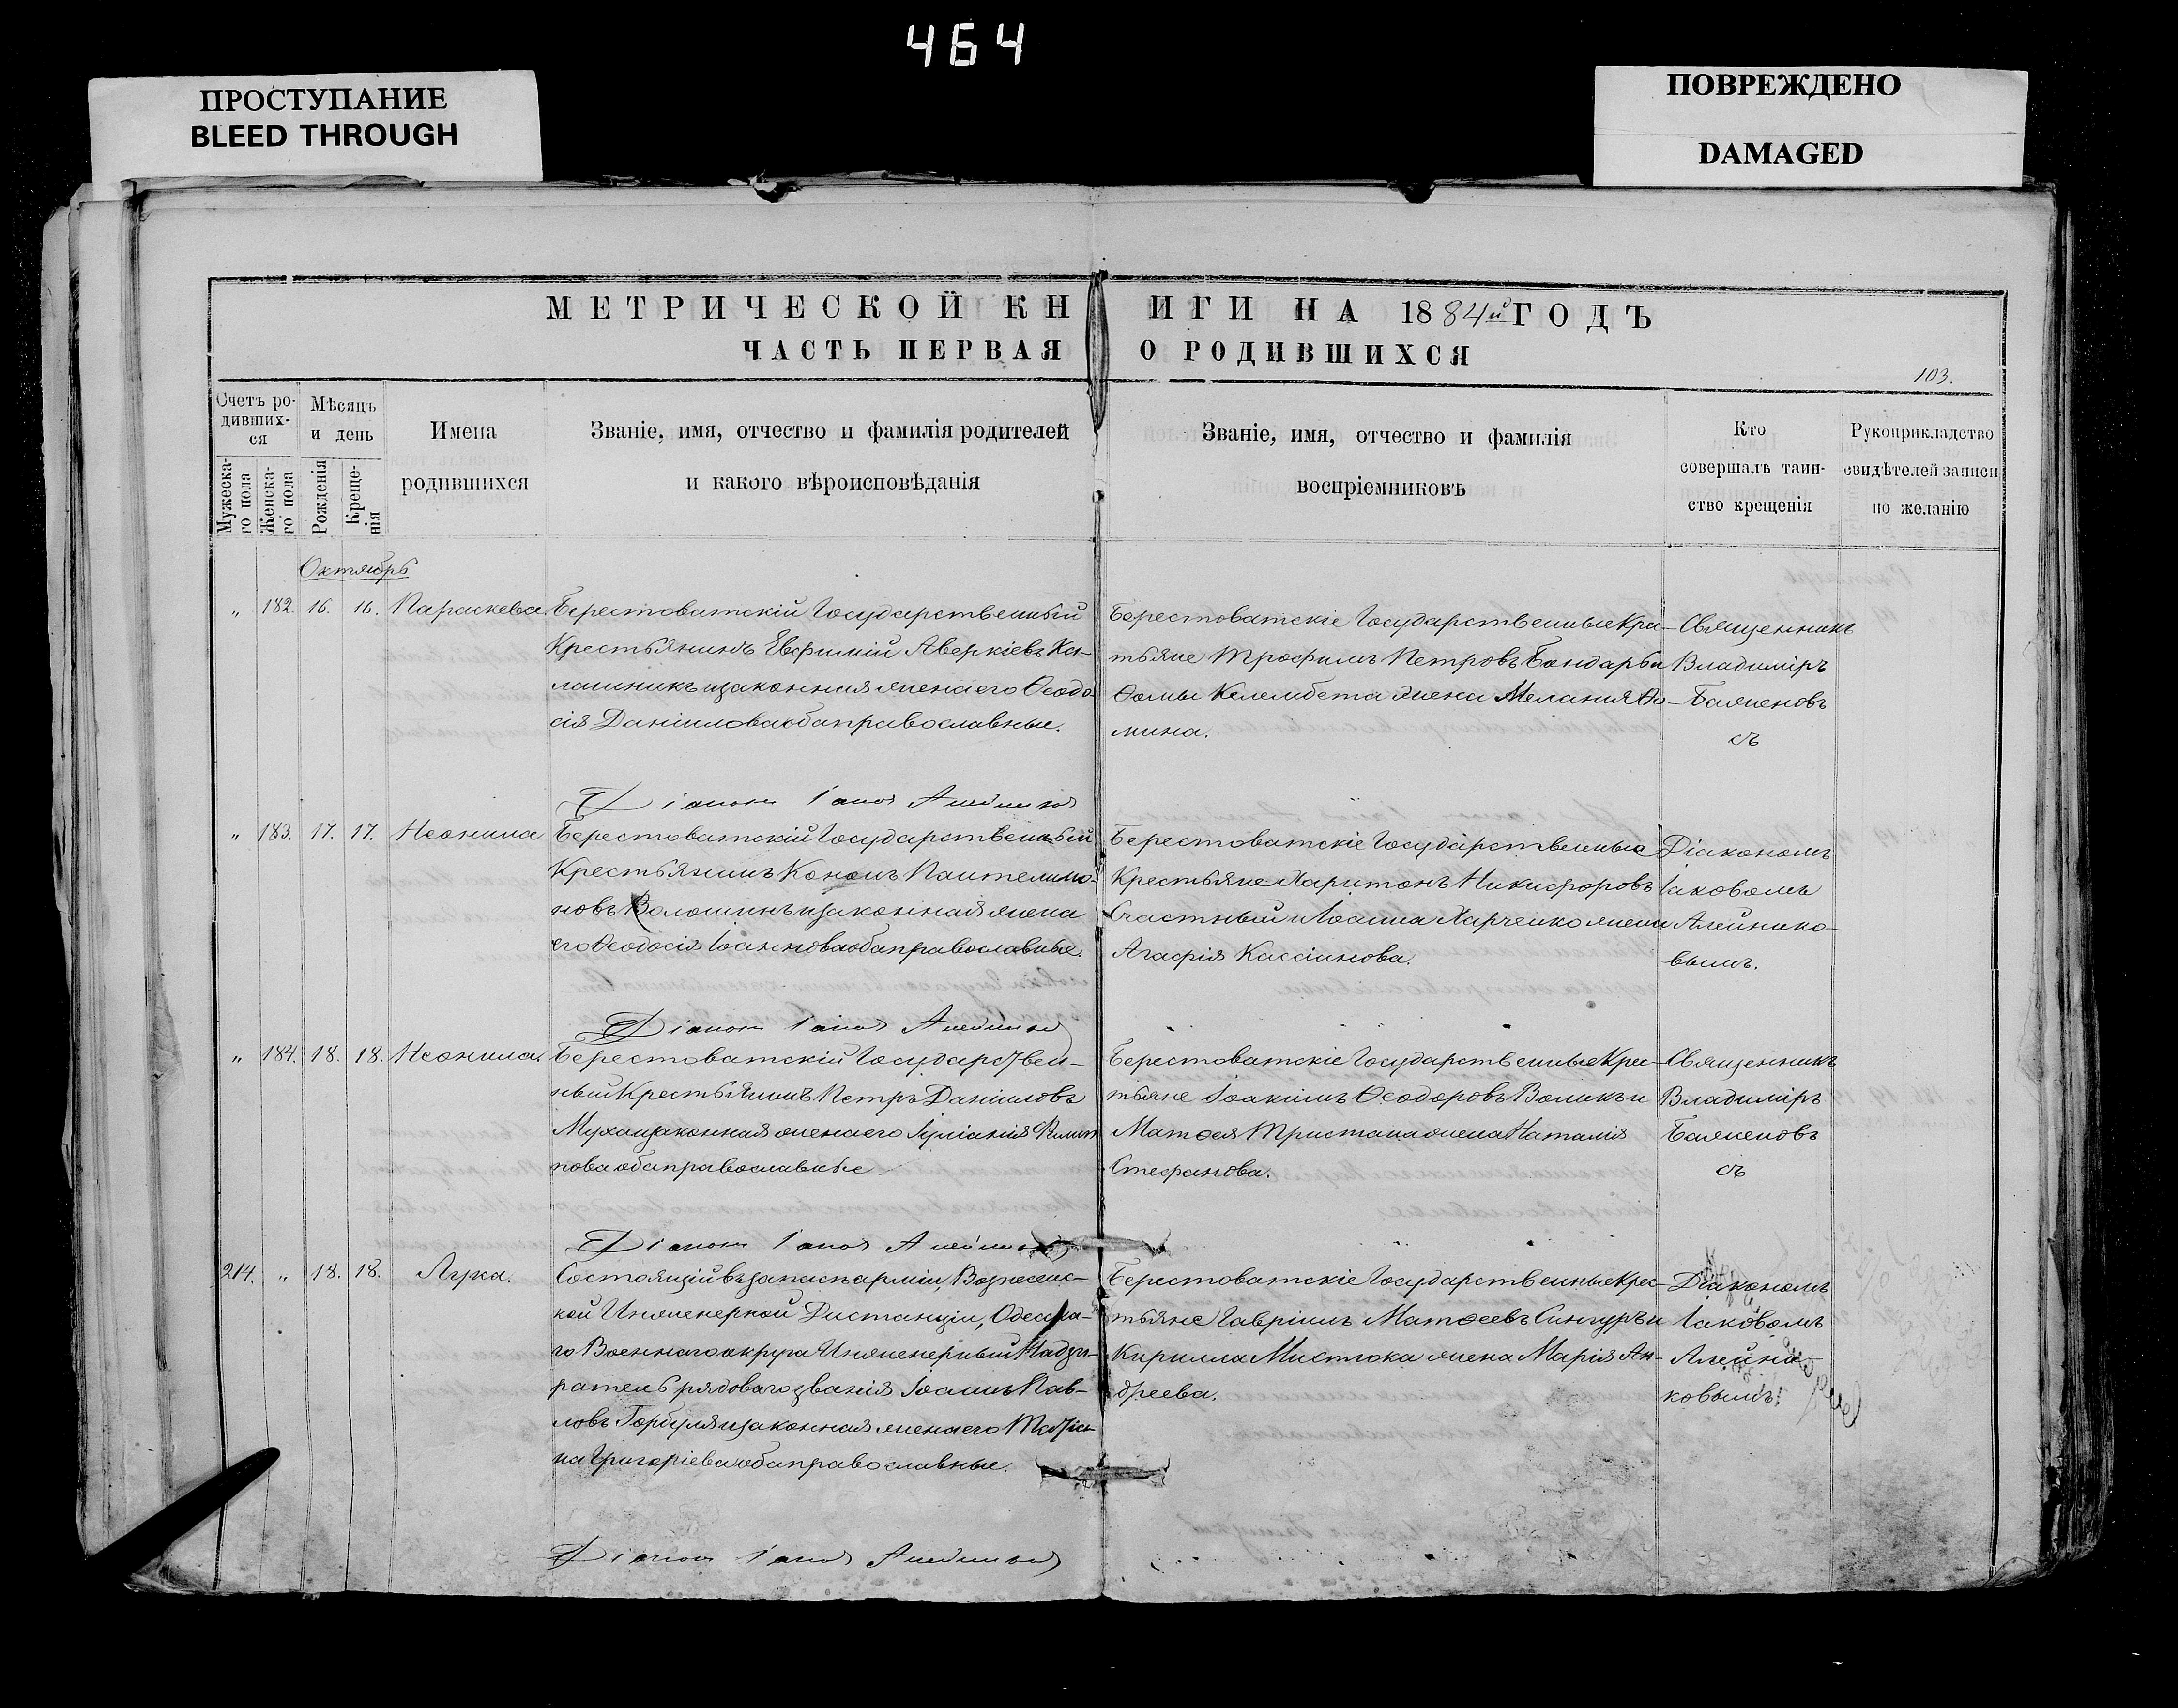 464
ПРОСТУПАНИЕ
BLEED THROUGH
ПОВРЕЖДЕНО
DAMAGED
МЕТРИЧЕСКОЙ КНИГИ НА 1884й ГОДЪ
ЧАСТЬ ПЕРВАЯ О РОДИВШИХСЯ
103.
Счетъ ро-
дивших-
ся
Мужеска-
го пола
Женска-
го пола
Мѣсяцъ
и день
Рожденія
Креще-
нія
Имена
родившихся
Званіе, имя, отчество и фамилія родителей
и какого вѣроисповѣданія
Званіе, имя, отчество и фамилія
воспріемниковъ
Кто
совершалъ таин-
ство крещенія
Рукоприкладство
свидѣтелей записи
по желанію
Октябрь
„ 182. 16. 16. Параскева.
Берестоватскій Государственный
Крестьянинъ Евфимій Аверкіевъ
и законная жена его Ѳеодо
сія Даніилова оба православные.
Берестоватскіе Государственные Крес-
тьяне Трофимъ Петровъ Бондарь и
Ѳомы Келембета жена Меланія Ѳо-
мина.
Священникъ
Владиміръ
Баженовъ
съ
Діаконъ Іаковъ Алейниковъ
„ 183. 17. 17. Неонила
Берестоватскій Государственный
Крестьянинъ Кононъ Пантелимо-
новъ Волошинъ и законная жена
его Ѳеодосія Іоаннова оба православные.
Берестоватскіе Государственные
Крестьяне Харитонъ Никифоровъ
Счастный и Іоанна Харченко жена
Агафія Кассіинова.
Діакономъ
Іаковомъ
Алейнико-
вымъ.
Діаконъ Іаковъ Алейниковъ
„ 184. 18. 18. Неонила.
Берестоватскій Государствен-
ный Крестьянинъ Петръ Даніиловъ
Муха и законная жена его Іуліанія Филип
пова оба православные
Берестоватскіе Государственные Крес-
тьяне Іоакимъ Ѳеодоровъ Воликъ и
Матѳея Тристана жена Наталія
Стефанова.
Священникъ
Владиміръ
Баженовъ
съ
Діаконъ Іаковъ Алейниковъ
214. „ 18. 18. Лука.
Состоящій въ запасѣ арміи, Вознесенс-
кой Инженерной Дистанціи, Одесска-
го Военнаго округа Инженерный Надзи-
ратель рядоваго званія Іоаннъ Пав-
ловъ Горбуля и законная жена его Татіа-
на Григоріева оба православные.
Берестоватскіе Государственные Крес-
тьяне Гавріилъ Матѳеевъ Сингуръ и
Кирилла Мистюка жена Марія Ан-
дреева.
Діакономъ
Іаковомъ
Алейни-
ковымъ.
Діаконъ Іаковъ Алейниковъ